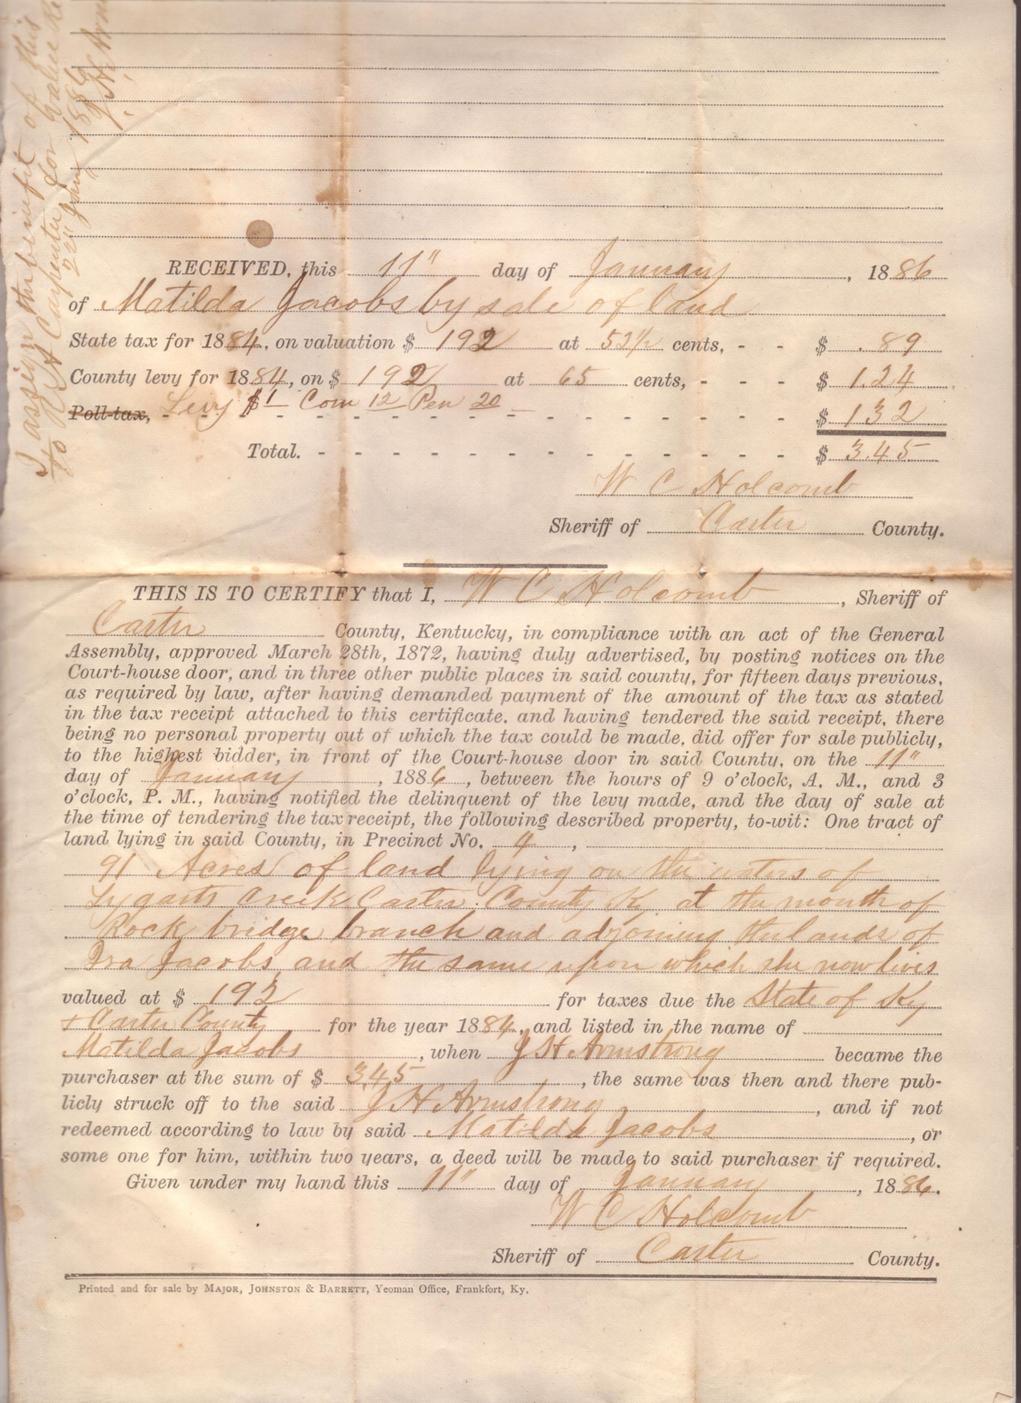 I assign the benefit of this
to R A Carpenter for value re
22" Jany 1886
J H Arm
RECEIVED, this 11" day of January, 1886
of Matilda Jacobs by sale of land
State tax for 1884, on valuation $ 192 at 52½ cents, - - $ .89
County levy for 1884, on $ 192 at 65 cents, - - - $ 1.24
Poll-tax, Levy $1 Com 12 Pen 20 - - - $ 1 32
Total. - - - - - - - - - - - - - $ 3.45
W C Holcomb
Sheriff of Carter County.
THIS IS TO CERTIFY that I, W C Holcomb, Sheriff of
Carter County, Kentucky, in compliance with an act of the General
Assembly, approved March 28th, 1872, having duly advertised, by posting notices on the
Court-house door, and in three other public places in said county, for fifteen days previous,
as required by law, after having demanded payment of the amount of the tax as stated
in the tax receipt attached to this certificate, and having tendered the said receipt, there
being no personal property out of which the tax could be made, did offer for sale publicly,
to the highest bidder, in front of the Court-house door in said County, on the 11"
day of January, 1886, between the hours of 9 o'clock, A. M., and 3
o'clock, P. M., having notified the delinquent of the levy made, and the day of sale at
the time of tendering the tax receipt, the following described property, to-wit: One tract of
land lying in said County, in Precinct No. 4,
91 Acres of land lying on the waters of
Tygarts Creek Carter County Ky at the mouth of
Rock bridge branch and adjoining the lands of
Ira Jacobs and the same upon which she now lives
valued at $ 192 for taxes due the State of Ky
& Carter County for the year 1884, and listed in the name of
Matilda Jacobs, when J H Armstrong became the
purchaser at the sum of $ 3.45, the same was then and there pub-
licly struck off to the said J H Armstrong, and if not
redeemed according to law by said Matilda Jacobs, or
some one for him, within two years, a deed will be made to said purchaser if required.
Given under my hand this 11" day of January, 1886.
W C Holcomb
Sheriff of Carter County.
Printed and for sale by MAJOR, JOHNSTON & BARRETT, Yeoman Office, Frankfort, Ky.